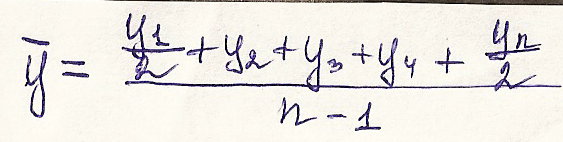 ȳ = (y₁/2 + y₂ + y₃ + y₄ + yₙ/2) / (n - 1)